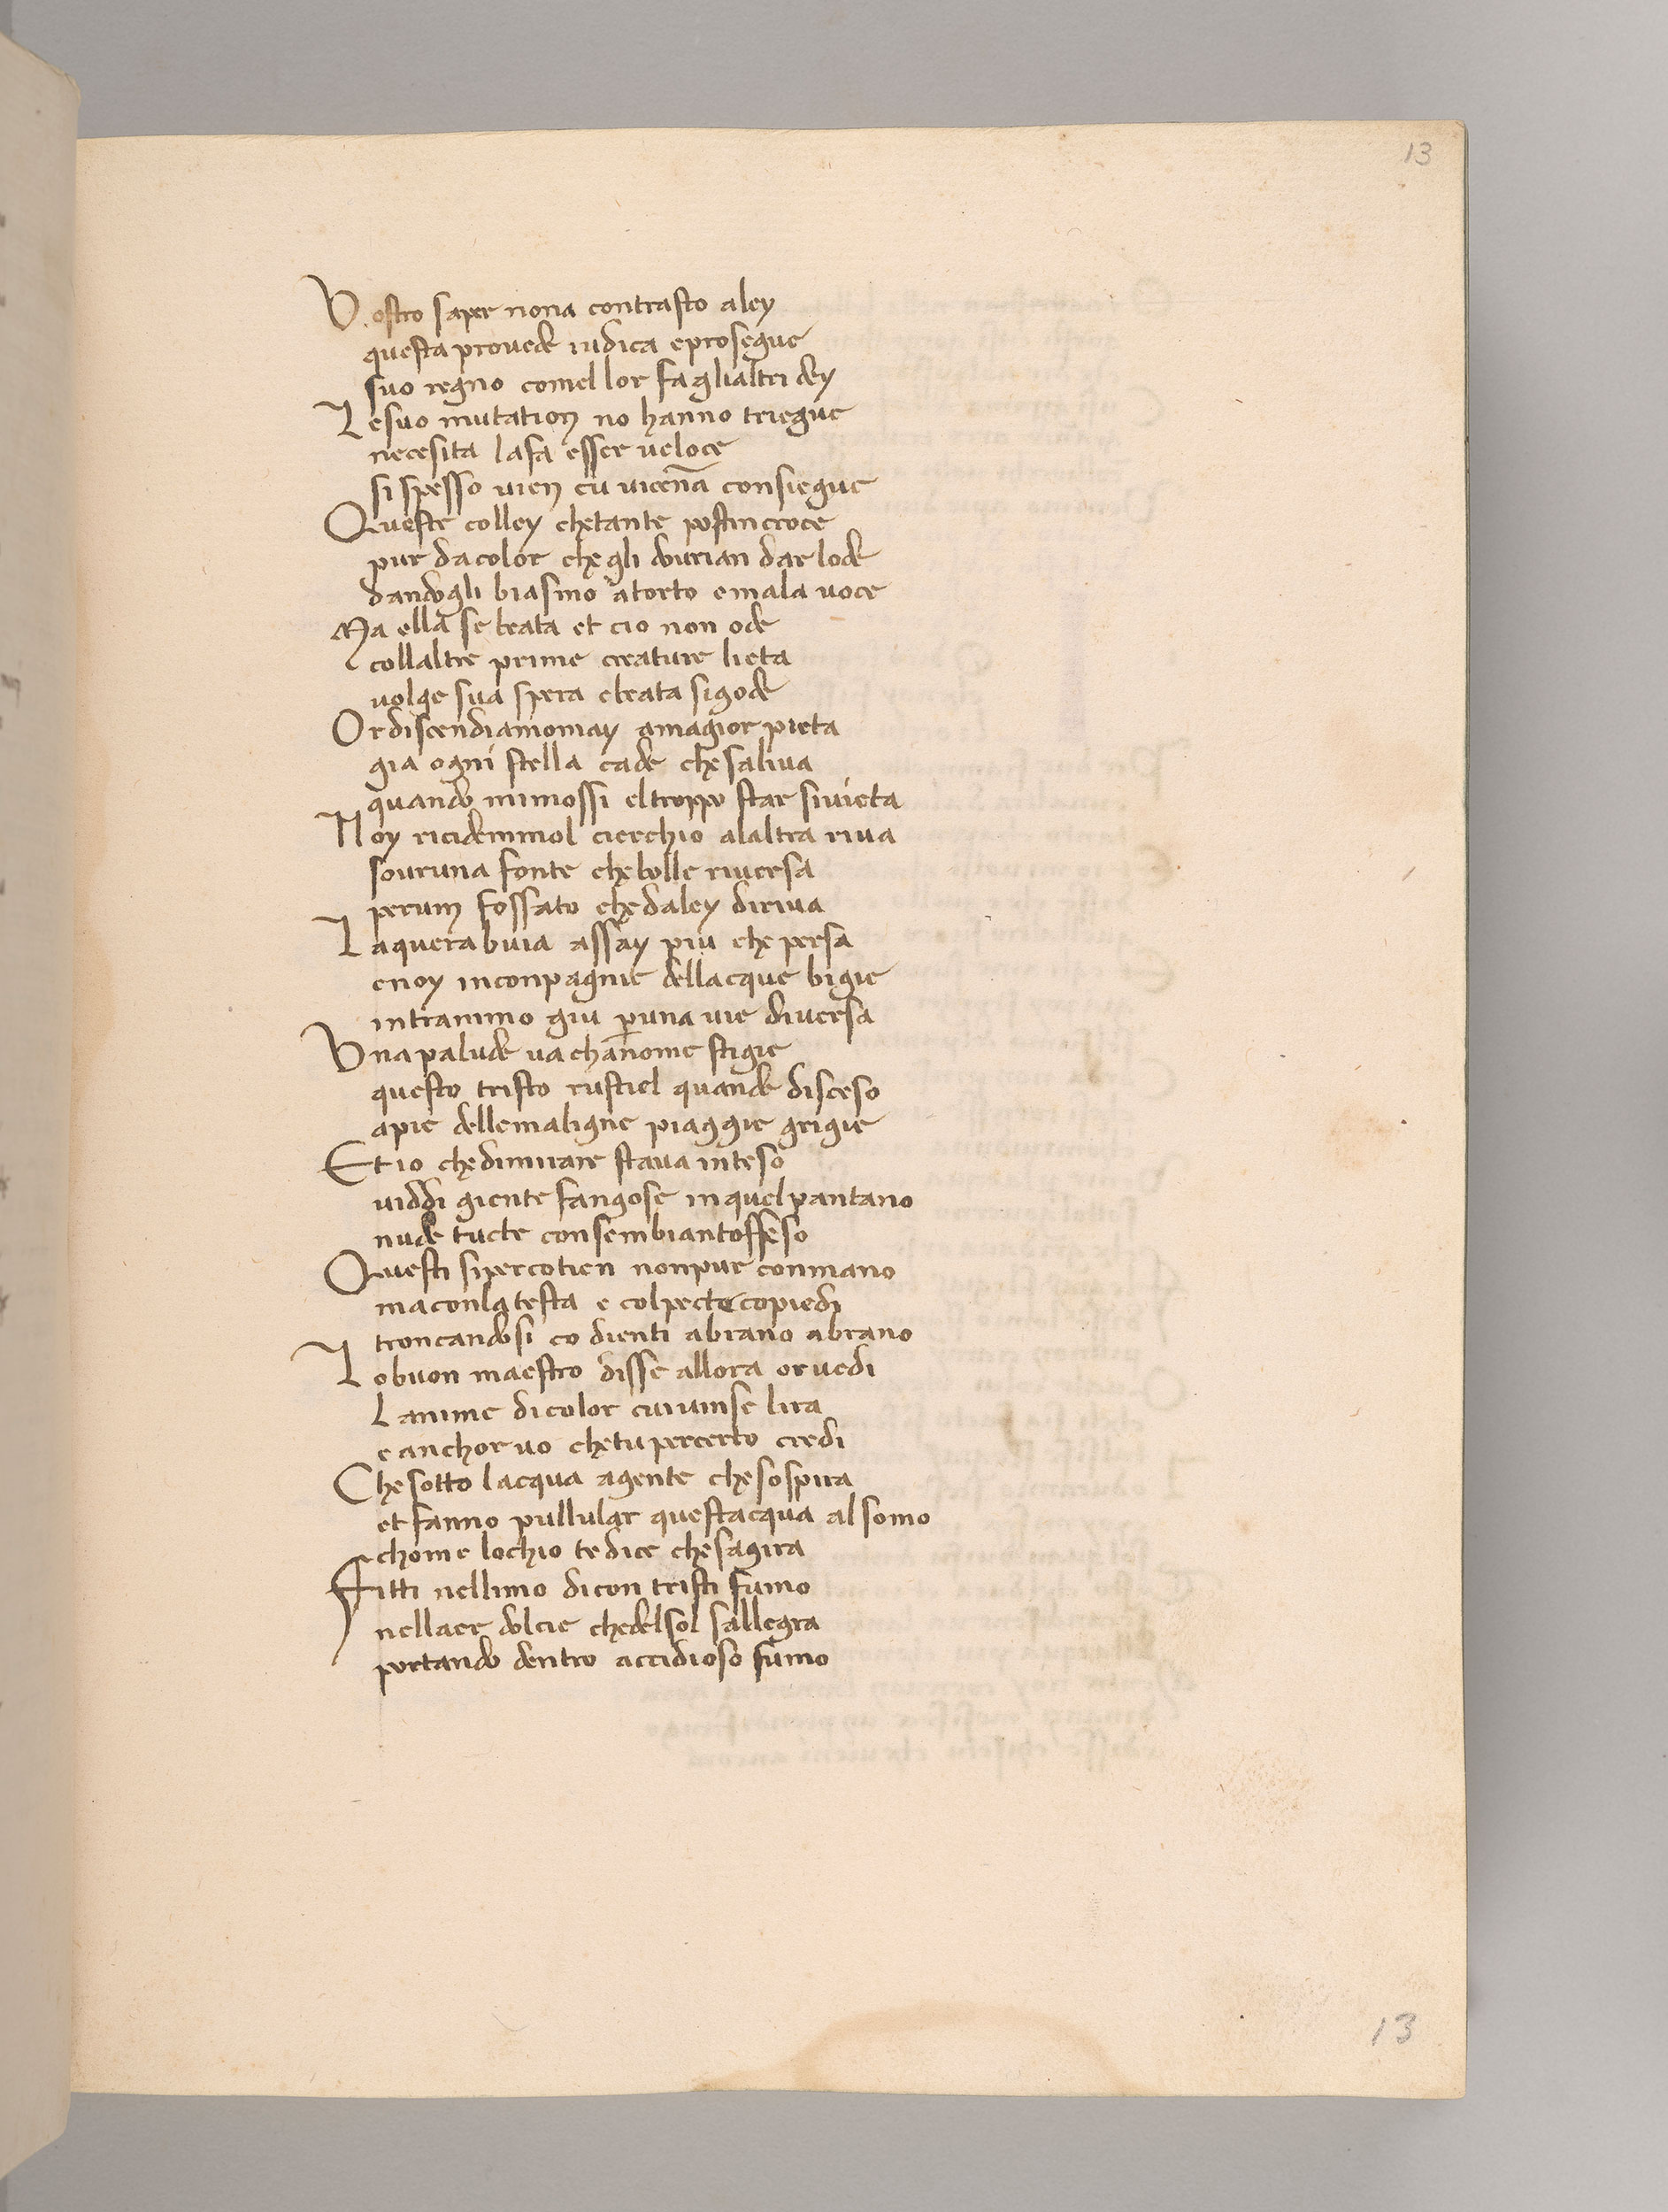 13
Vostro saper nona contrasto aley
questa provede iudica eprosegue
suo regno comel lor fa glialtri dey
Lesuo mutation no hanno triegue
necesita lafa esser veloce
si spesso vien cu vicenā consiegue
Queste colley chetante postincroce
pur dacolor che gli dourian dar lode
dandogli biasmo atorto emala voce
Ma ella se beata et cio non ode
collaltre prime creature lieta
volge sua spera ebeata sigode
Ordiscendiamomay amagior pieta
gia ogni stella cade chesaliva
quando mimossi eltroppo star sivieta
Noy ricidemmol cierchio alaltra riva
souruna fonte chebolle riversa
perum fossato chedaley diriva
Laquera buia assay piu che persa
enoy inconpagnie dellacque bigie
intrammo giu ꝑuna vie diversa
Vna palude va chānome stigie
questo tristo rusciel quande disceso
apie dellemaligne piaggie grigie
Et io chedimirare stava inteso
viddi giente fangose inquelpantano
nude tucte consembiantoffeso
Questi sipercotien nonpur conmano
maconla testa e colpecto copiedi
troncandosi co dienti abrano abrano
Lobuon maestro disse allora or vedi
Lanime dicolor cuivinse lira
e anchor vo chetupercerto credi
Chesotto lacqua agente chesospira
et fanno pullular questacqua al somo
chome lochio te dice chesagira
Fitti nellimo dicon tristi fumo
nellaer dolcie chedelsol sallegra
portando dentro accidioso fumo
13